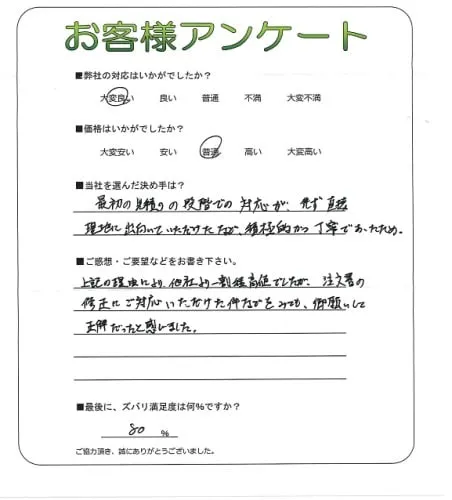 お客様アンケート
■弊社の対応はいかがでしたか?
大変良い 良い 普通 不満 大変不満
■価格はいかがでしたか?
大変安い 安い 普通 高い 大変高い
■当社を選んだ決め手は?
最初の見積りの段階での対応が、先ず直接
現地に出向いていただけたなど、積極的かつ丁寧であったため。
■ご感想・ご要望などをお書き下さい。
上記の理由により、他社より一割程高値でしたが、注文書の
修正にご対応いただけた件などをみても、御願いして
正解だったと感じました。
■最後に、ズバリ満足度は何%ですか?
80 %
ご協力頂き、誠にありがとうございました。